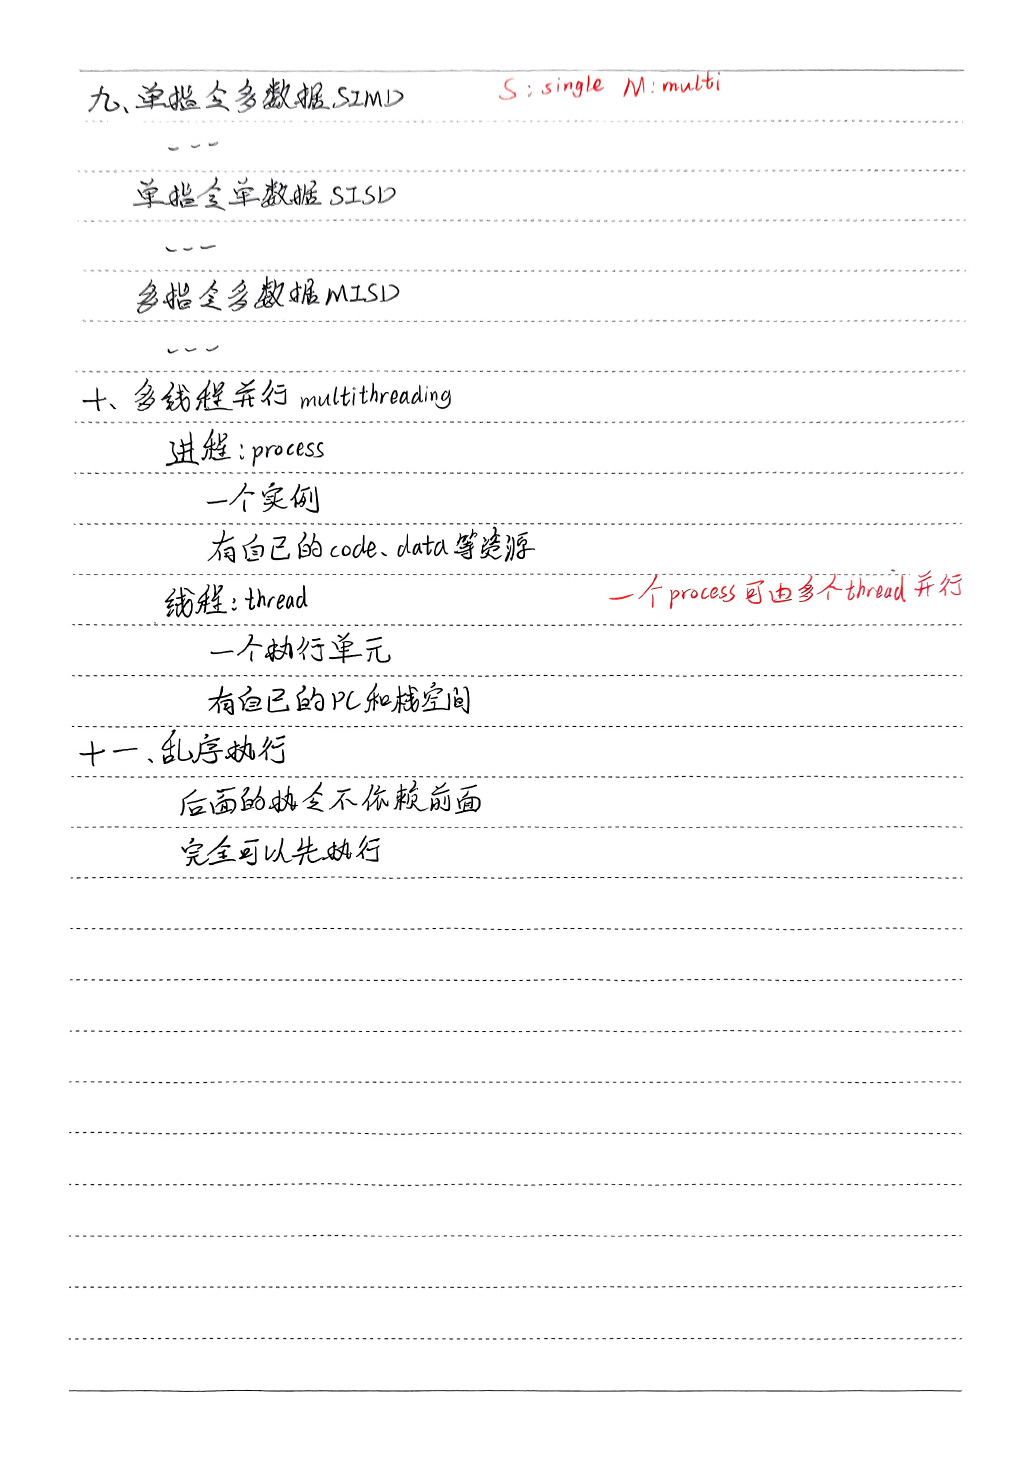 九、单指令多数据SIMD S:single M:multi
---
单指令单数据SISD
---
多指令多数据MISD
---
十、多线程并行 multithreading
进程:process
一个实例
有自己的code、data等资源
线程:thread 一个process可由多个thread并行
一个执行单元
有自己的PC和栈空间
十一、乱序执行
后面的执令不依赖前面
完全可以先执行